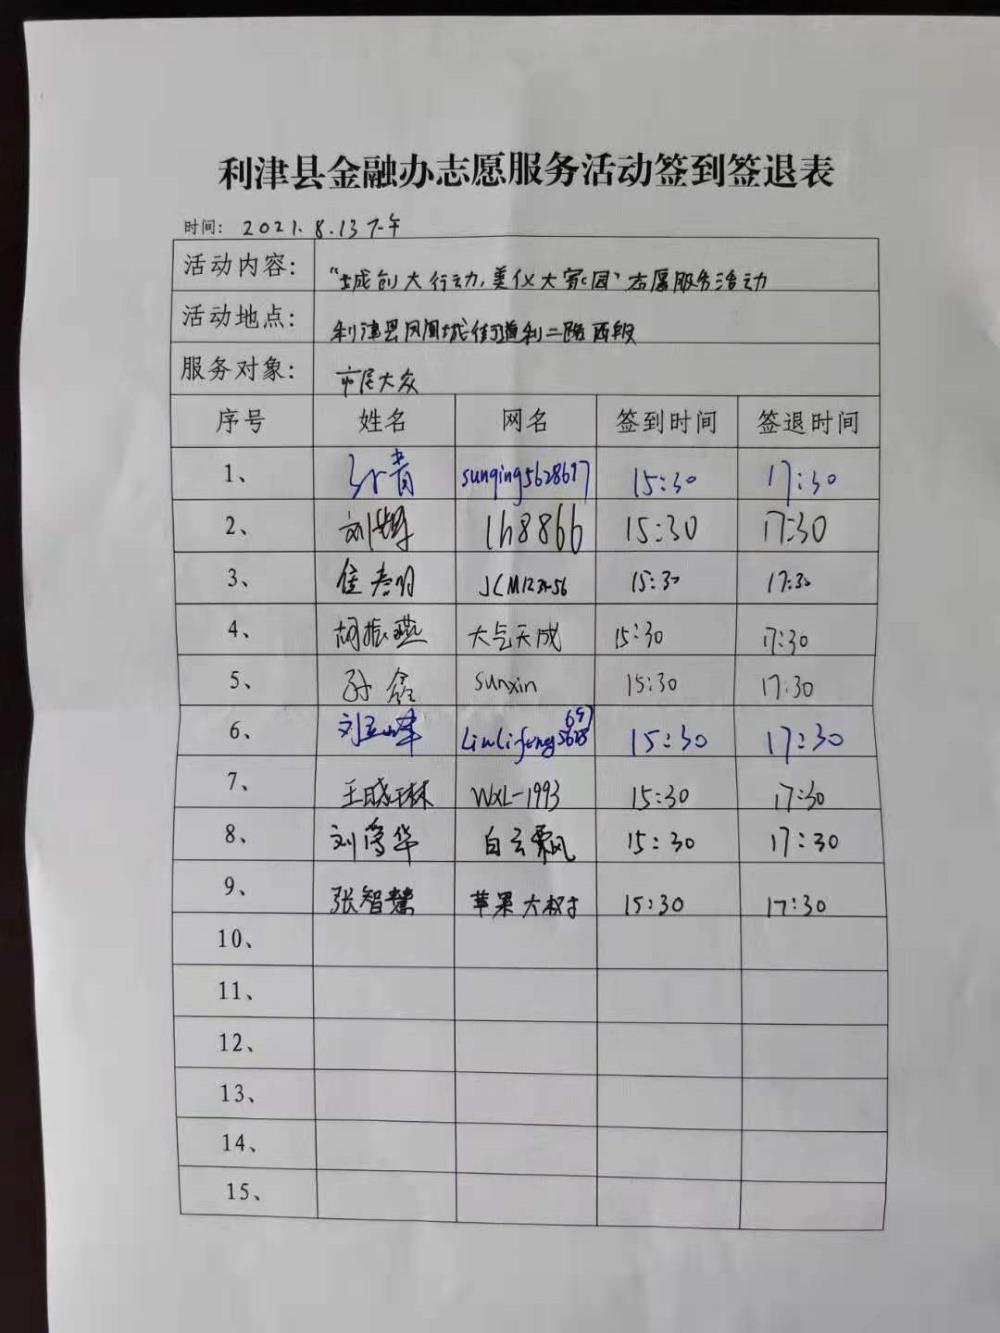 利津县金融办志愿服务活动签到签退表
时间: 2021.8.13下午
活动内容: "城创大行动,美仪大家园"志愿服务活动
活动地点: 利津县凤凰城街道利二路西段
服务对象: 市民大众
序号 姓名 网名 签到时间 签退时间
1、 孙青 sunqing5628697 15:30 17:30
2、 刘 lh8866 15:30 17:30
3、 15:30 17:30
4、 胡振燕 大气天成 15:30 17:30
5、 孙鑫 sunxin 15:30 17:30
6、 刘立峰 15:30 17:30
7、 王晓琳 WXL-1993 15:30 17:30
8、 刘 华 白云乘风 15:30 17:30
9、 张智慧 苹果大叔 15:30 17:30
10、
11、
12、
13、
14、
15、